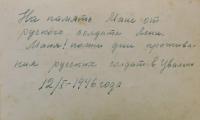 На память Мане от
руского солдата Вени.
Маня! помни дни прожива-
ния русских солдат в Ували
12/V-1946 года